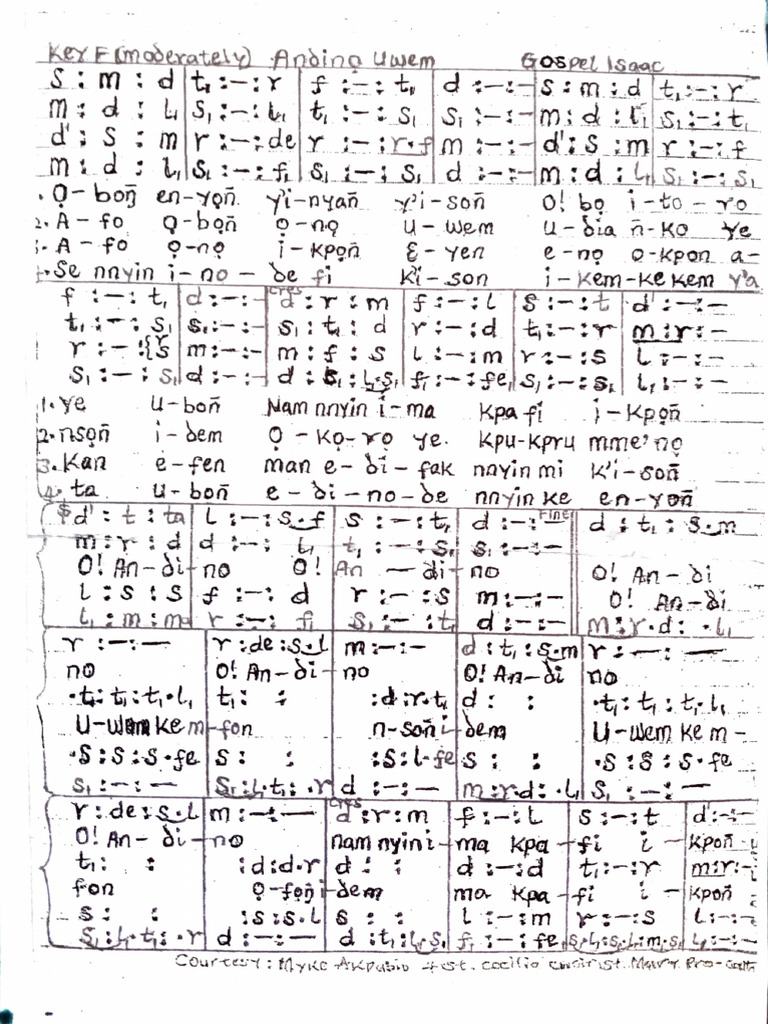 Key F (moderately) Andinọ Uwem Gospel Isaac
s : m : d | t₁ : – : r | f : – : t₁ | d : – : – | s : m : d | t₁ : – : r
m : d : l₁ | s₁ : – : l₁ | t₁ : – : s₁ | s₁ : – : – | m : d : l₁ | s₁ : – : t₁
d' : s : m | r : – : de | r : – : r . f | m : – : – | d' : s : m | r : – : f
m : d : l₁ | s₁ : – : f₁ | s₁ : – : s₁ | d : – : – | m : d : l₁ | s₁ : – : s₁
1. Ọ – boñ en-yọñ y'i-nyañ y'i-soñ O! bọ i-to – ro
2. A – fo Ọ-boñ ọ-nọ u – wem u-dia ñ-ko ye
3. A – fo ọ-nọ i-kpọñ E-yen e-nọ o-kpon a-
4. Se nnyin i-no – de fi k'i-son i-kem-ke kem y'a
f : – : t₁ | d : – : – | cres d : r : m | f : – : l | s : – : t | d' : – : –
t₁ : – : s₁ | s₁ : – : – | s₁ : t₁ : d | r : – : d | t₁ : – : r | m : r : –
r : – : {r s | m : – : – | m : f : s | l : – : m | r : – : s | l : – : –
s₁ : – : s₁ | d : – : – | d : s₁ : l₁ . s₁ | f₁ : – : fe₁ | s₁ : – : s₁ | l₁ : – : –
1. ye u-boñ Nam nnyin i-ma kpa fi i-kpọñ
2. nsọñ i-dem Ọ-kọ-rọ ye kpu-kpru mme'nọ
3. kan e-fen man e-di-fak nnyin mi k'i-soñ
4. ta u-boñ e-di-no-de nnyin ke en-yoñ
$ d' : t : ta | l : – : s . f | s : – : t₁ | d : – : Fine | d : t₁ : s . m
m : r : d | d : – : l₁ | t₁ : – : s₁ | s₁ : – : –
O! An-di-no O! An – di – no O! An-di
l : s : s | f : – : d | r : – : s | m : – : – | O! An-di
l₁ : m : ma | r : – : f₁ | s₁ : – : t₁ | d : – : – | m : r . d : . l₁
r : – : – | r : de : s . l | m : – : – | d : t₁ : s . m | r : – : –
no O! An-di-no O! An-di no
. t₁ : t₁ : t₁ . l₁ | t₁ : : | : d : r . t₁ | d : : | . t₁ : t₁ : t₁ . l₁
U-wem ke m-fon n-soñ i-dem U-wem ke m-
. s : s : s . fe | s : : | : s : l . fe | s : : | . s : s : s . fe
s₁ : – : – | s₁ : l₁ . t₁ : . r | d : – : – | m : r . d : . l₁ | s₁ : – : –
r : de : s . l | m : – : – | cres d : r : m | f : – : l | s : – : t | d' : – : –
O! An-di-no nam nnyin i-ma kpa-fi i – kpoñ
t₁ : : | : d : d . r | d : : | d : – : d | t₁ : – : r | m : r : –
fon ọ-foñ i-dem ma kpa-fi i – kpoñ
s : : | : s : s . l | s : : | l : – : m | r : – : s | l : – : –
s₁ : l₁ . t₁ : . r | d : – : – | d : t₁ : l₁ . s₁ | f₁ : – : fe₁ | s₁ . l₁ : s₁ . l₁ : m . s₁ | l₁ : – : –
Courtesy : Myke Akpabio st. cecilia choir st. Mary Pro-